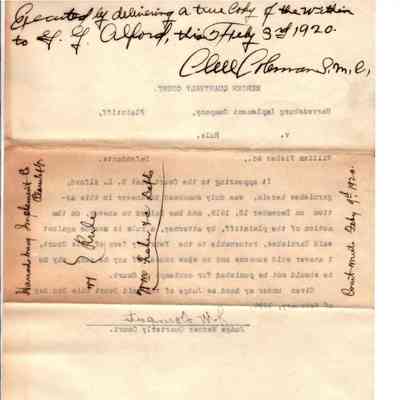 Executed by delivering a true copy of the within
to G. G. Alford, this Feby 3rd 1920.
Coleman S.M.C.
MERCER QUARTERLY COURT
Harrodsburg Implement Company, Plaintiff,
v. Rule.
William Fisher &c., Defendants.
It appearing to the Court that G. L. Alford,
garnishee herein, was duly summoned to answer in this ac-
tion on December 15, 1919, and has failed to answer, on the
motion of the plaintiff, by attorney, a rule is awarded against
said Garnishee, returnable to the February Term of this Court,
Given under my hand as Judge of said Court this 2nd day
of February, 1920.
Judge Mercer Quarterly Court.
Harrodsburg Implement Co
Plaintiff
vs } Rule
Wm Fisher &c Defts
Court Wed. Feby 9th 1920.